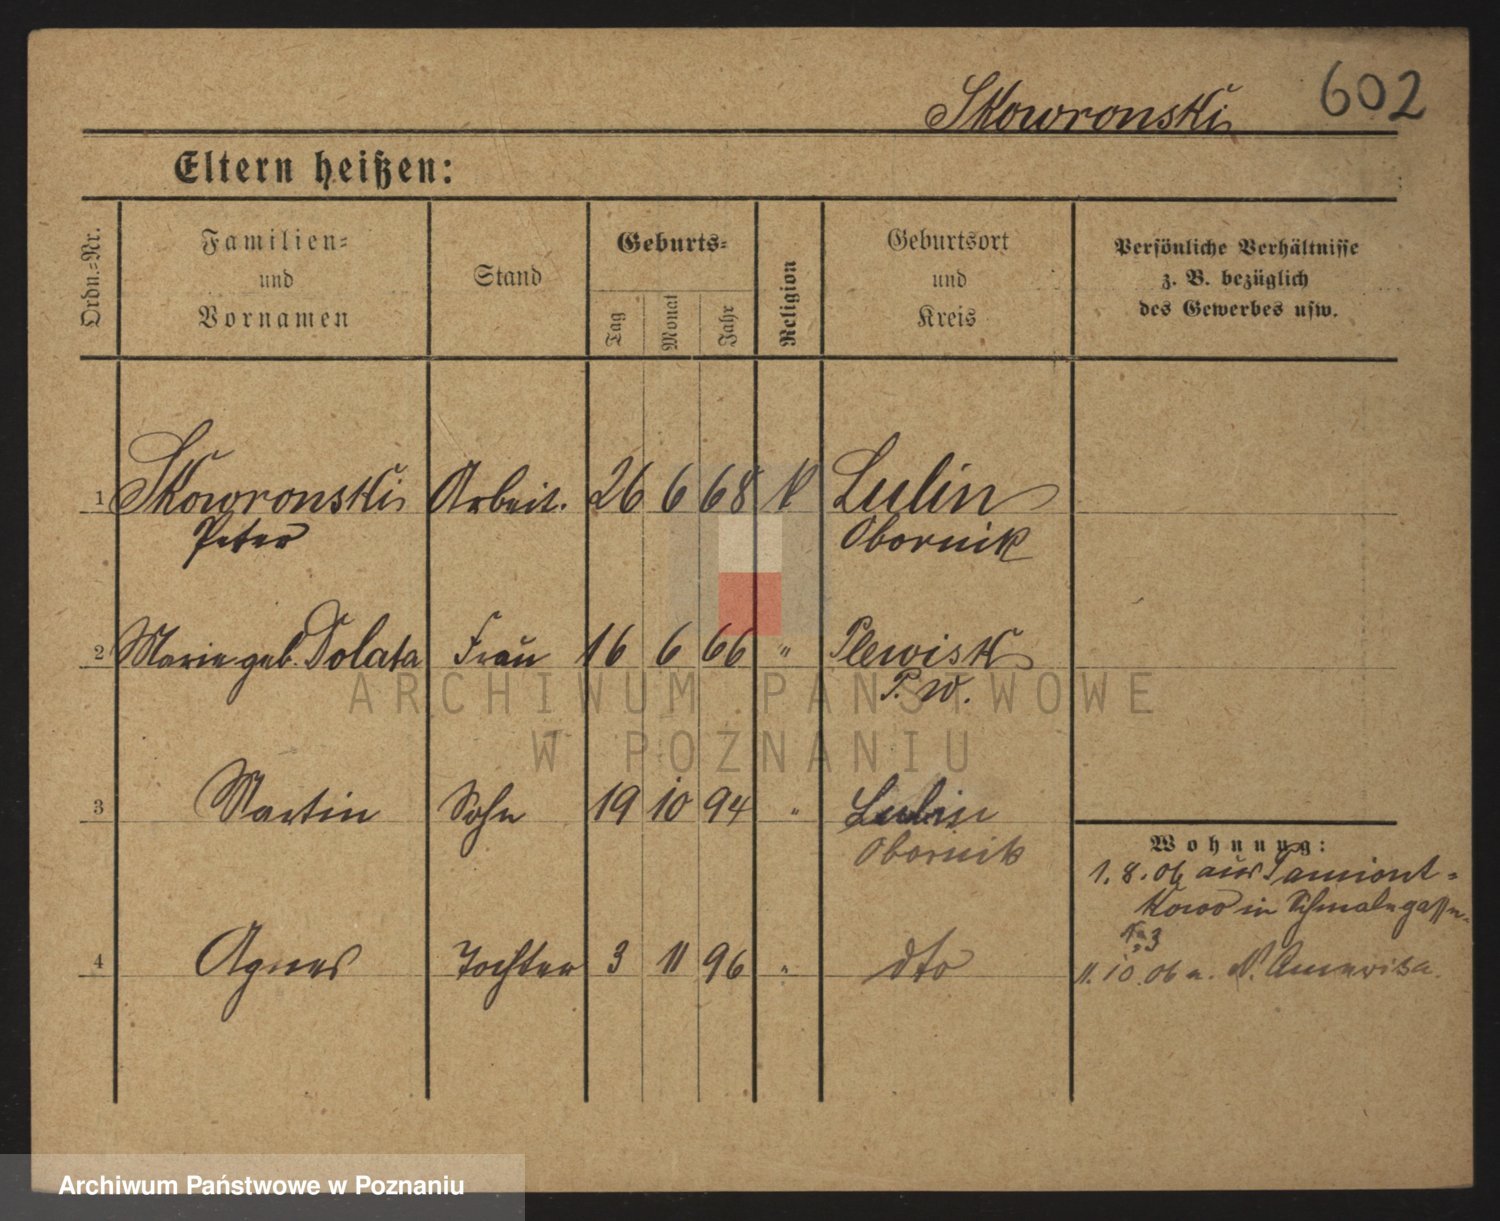 602
Skowronski
Eltern heißen:
Ordn.-Nr.
Familien-
und
Vornamen
Stand
Geburts-
Tag
Monat
Jahr
Religion
Geburtsort
und
Kreis
Persönliche Verhältnisse
z. B. bezüglich
des Gewerbes usw.
1 Skowronski Arbeit. 26 6 68 K Lulin
Peter Obornik
2 Marie geb. Dolata Frau 16 6 66 " Plewisk
P. W.
3 Martin Sohn 19 10 94 " Lulin
Obornik
4 Agnes Tochter 3 11 96 " dto
Wohnung:
1. 8. 06 aus
kowo in Schmalegasse
No 3
11. 10. 06 n.
ARCHIWUM PAŃSTWOWE
W POZNANIU
Archiwum Państwowe w Poznaniu